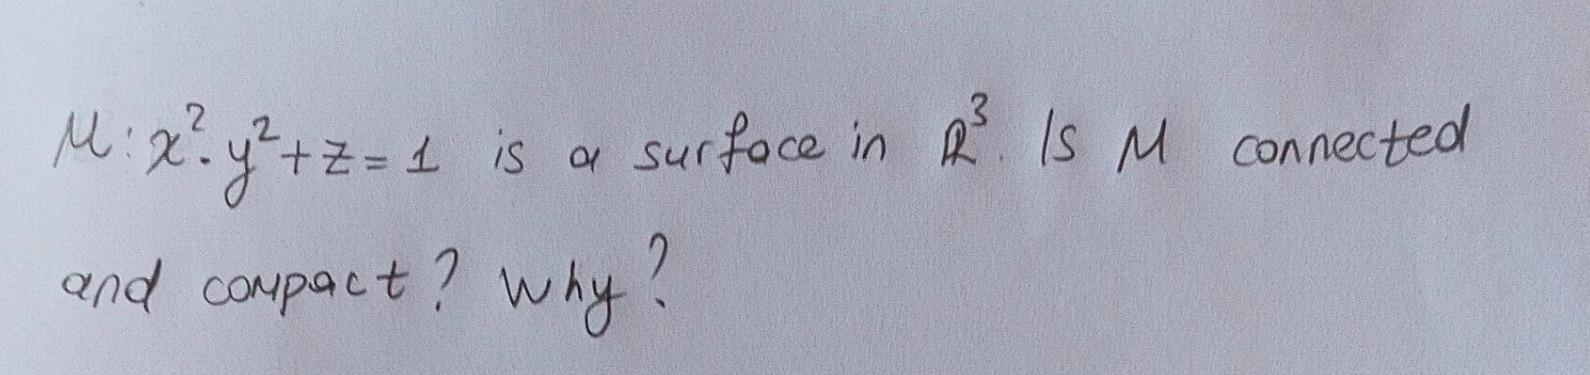 M: x². y² + z = 1 is a surface in ℝ³. Is M connected
and compact? Why?